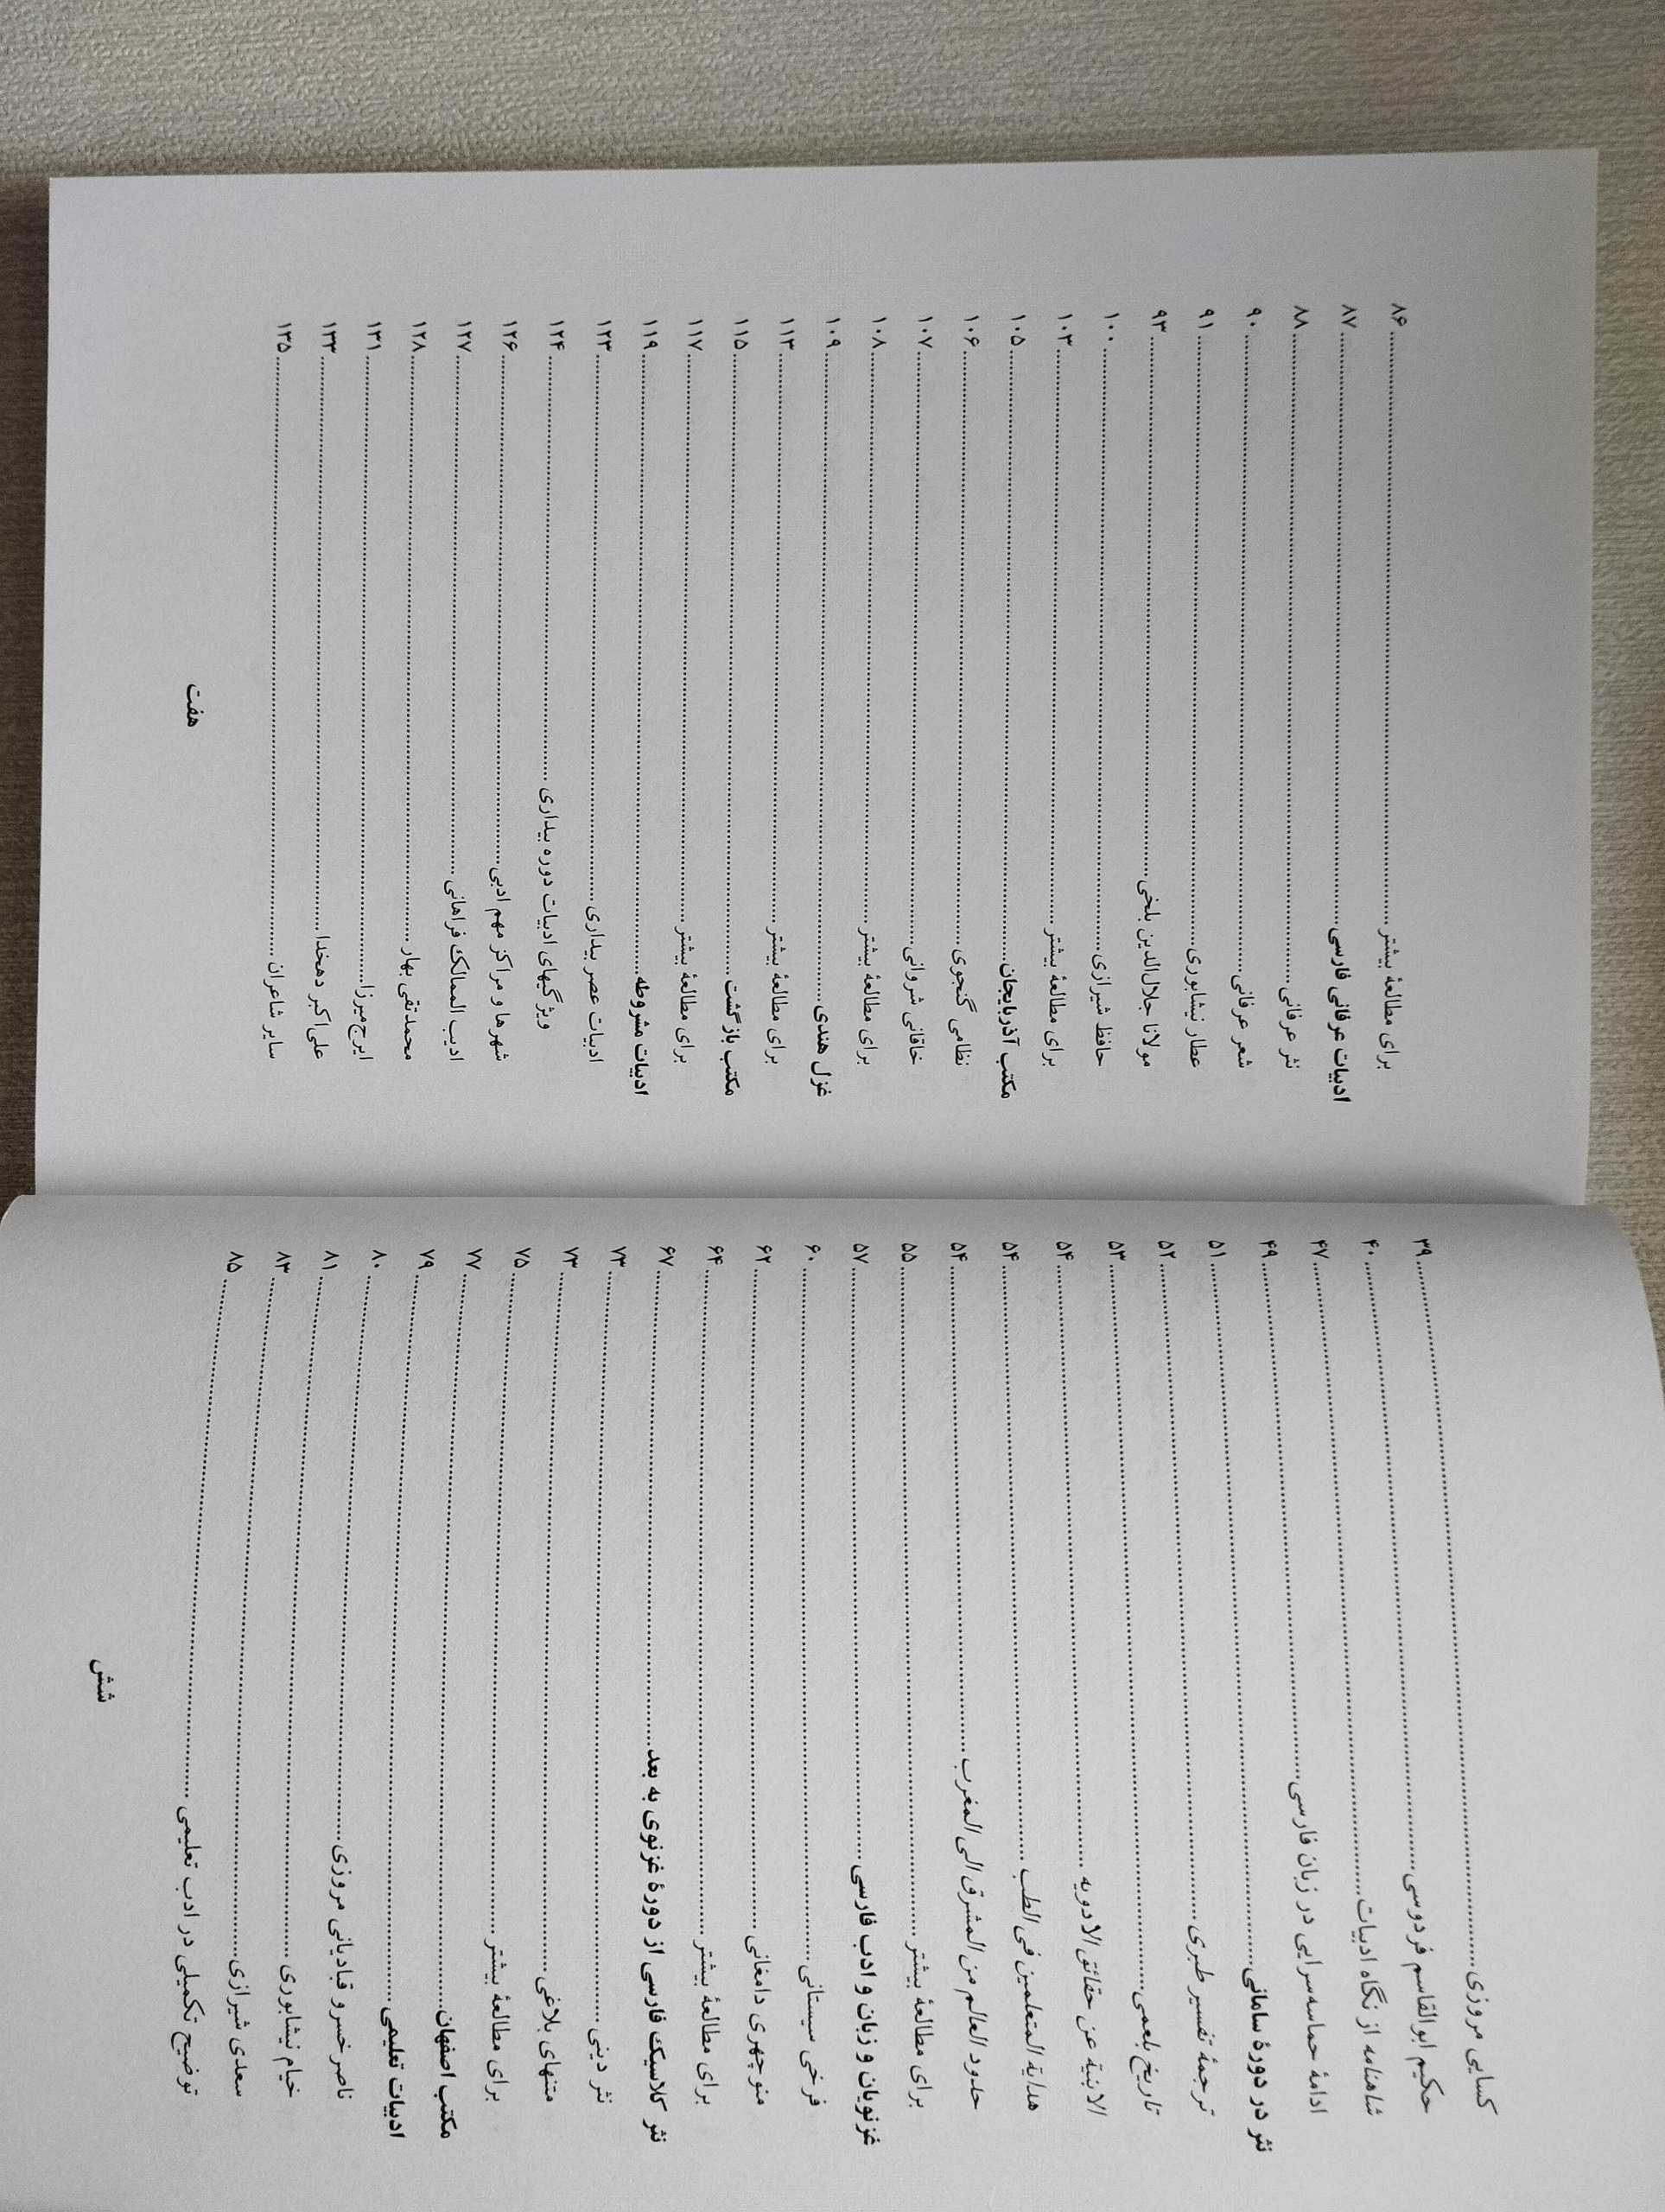 کسایی مروزی ..... ۳۹
حکیم ابوالقاسم فردوسی ..... ۴۰
شاهنامه از نگاه ادبیات ..... ۴۷
ادامهٔ حماسه‌سرایی در زبان فارسی ..... ۴۹
نثر در دورهٔ سامانی ..... ۵۱
ترجمهٔ تفسیر طبری ..... ۵۲
تاریخ بلعمی ..... ۵۳
الابنیة عن حقائق الادویه ..... ۵۴
هدایة المتعلمین فی الطب ..... ۵۴
حدود العالم من المشرق الی المغرب ..... ۵۴
برای مطالعهٔ بیشتر ..... ۵۵
غزنویان و زبان و ادب فارسی ..... ۵۷
فرخی سیستانی ..... ۶۰
منوچهری دامغانی ..... ۶۲
برای مطالعهٔ بیشتر ..... ۶۴
نثر کلاسیک فارسی از دورهٔ غزنوی به بعد ..... ۶۷
نثر دینی ..... ۷۳
متنهای بلاغی ..... ۷۳
برای مطالعهٔ بیشتر ..... ۷۵
مکتب اصفهان ..... ۷۷
ادبیات تعلیمی ..... ۷۹
ناصر خسرو قبادیانی مروزی ..... ۸۰
خیام نیشابوری ..... ۸۱
سعدی شیرازی ..... ۸۳
توضیح تکمیلی در ادب تعلیمی ..... ۸۵
شش
برای مطالعهٔ بیشتر ..... ۸۶
ادبیات عرفانی فارسی ..... ۸۷
نثر عرفانی ..... ۸۸
شعر عرفانی ..... ۹۰
عطار نیشابوری ..... ۹۱
مولانا جلال‌الدین بلخی ..... ۹۳
حافظ شیرازی ..... ۱۰۰
برای مطالعهٔ بیشتر ..... ۱۰۳
مکتب آذربایجان ..... ۱۰۵
نظامی گنجوی ..... ۱۰۶
خاقانی شروانی ..... ۱۰۷
برای مطالعهٔ بیشتر ..... ۱۰۸
غزل هندی ..... ۱۰۹
برای مطالعهٔ بیشتر ..... ۱۱۳
مکتب بازگشت ..... ۱۱۵
برای مطالعهٔ بیشتر ..... ۱۱۷
ادبیات مشروطه ..... ۱۱۹
ادبیات عصر بیداری ..... ۱۲۳
ویژگیهای ادبیات دوره بیداری ..... ۱۲۴
شهرها و مراکز مهم ادبی ..... ۱۲۶
ادیب الممالک فراهانی ..... ۱۲۷
محمدتقی بهار ..... ۱۲۸
ایرج‌میرزا ..... ۱۳۱
علی‌اکبر دهخدا ..... ۱۳۳
سایر شاعران ..... ۱۳۵
هفت